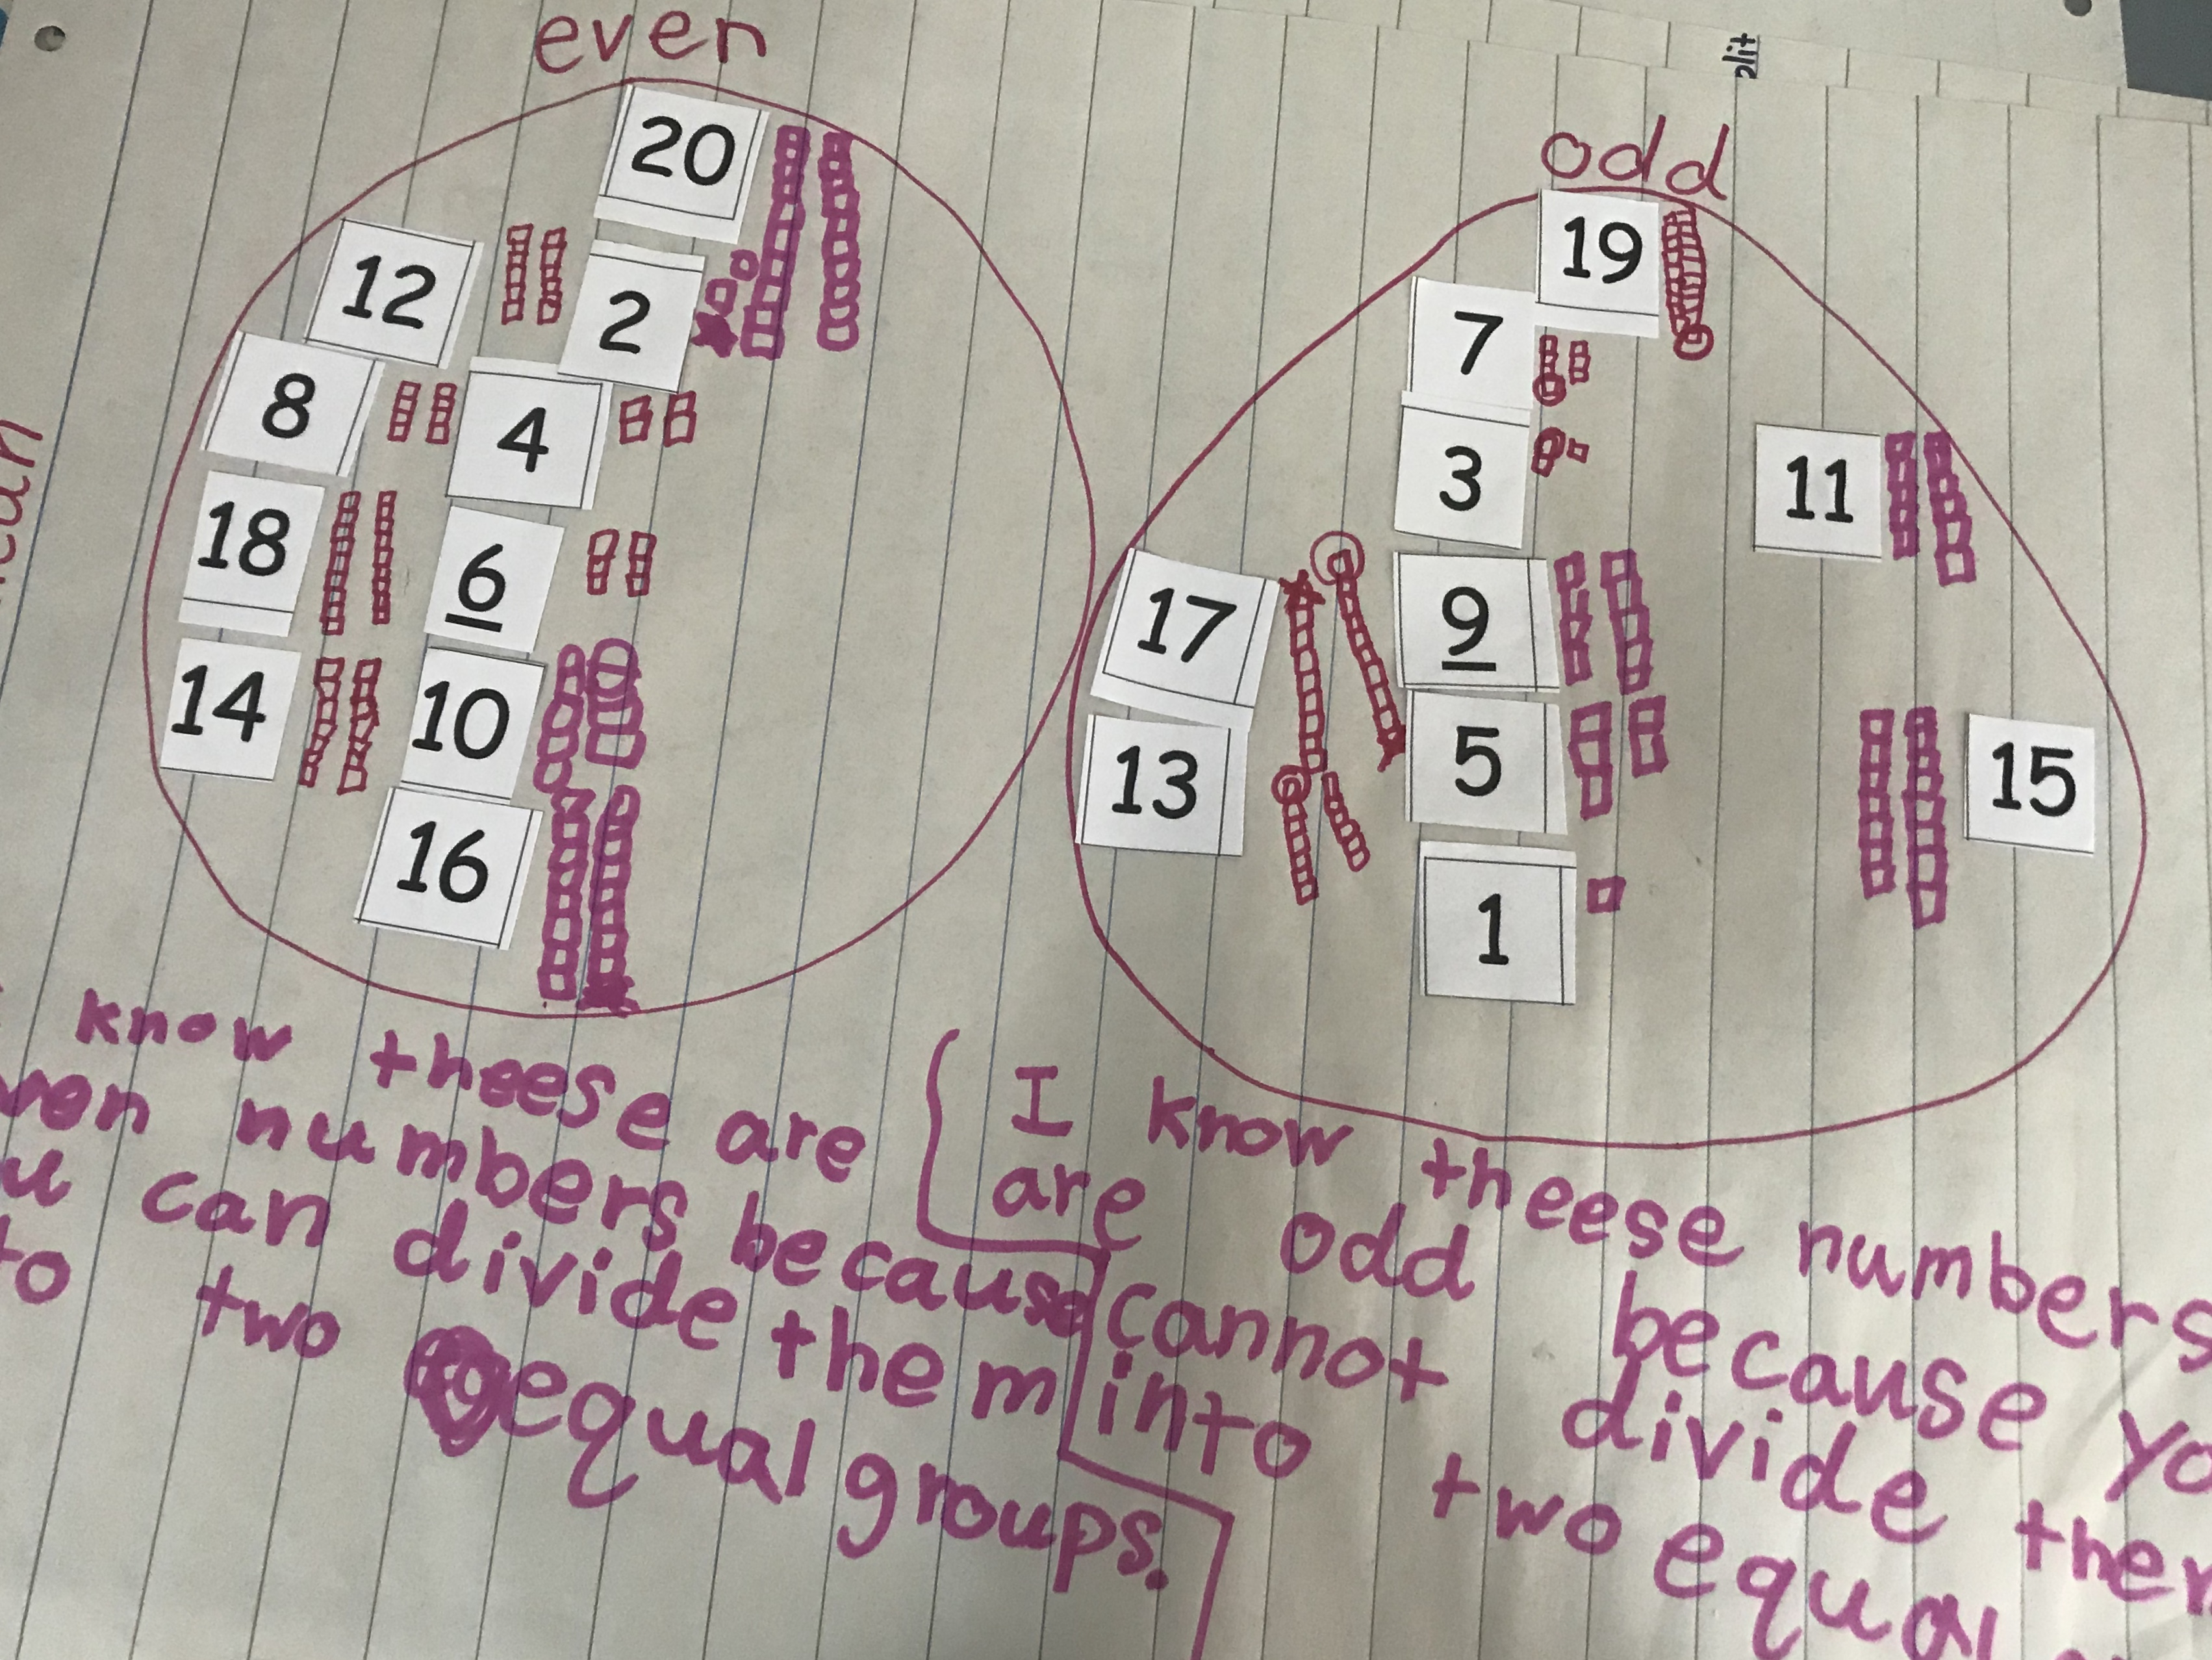 plit
even
odd
20
12
2
8
4
18
6
14
10
16
19
7
3
11
17
9
13
5
15
1
know theese are
numbers because
can divide them
two equal groups.
I know theese numbers
are odd because
cannot divide
into two equal